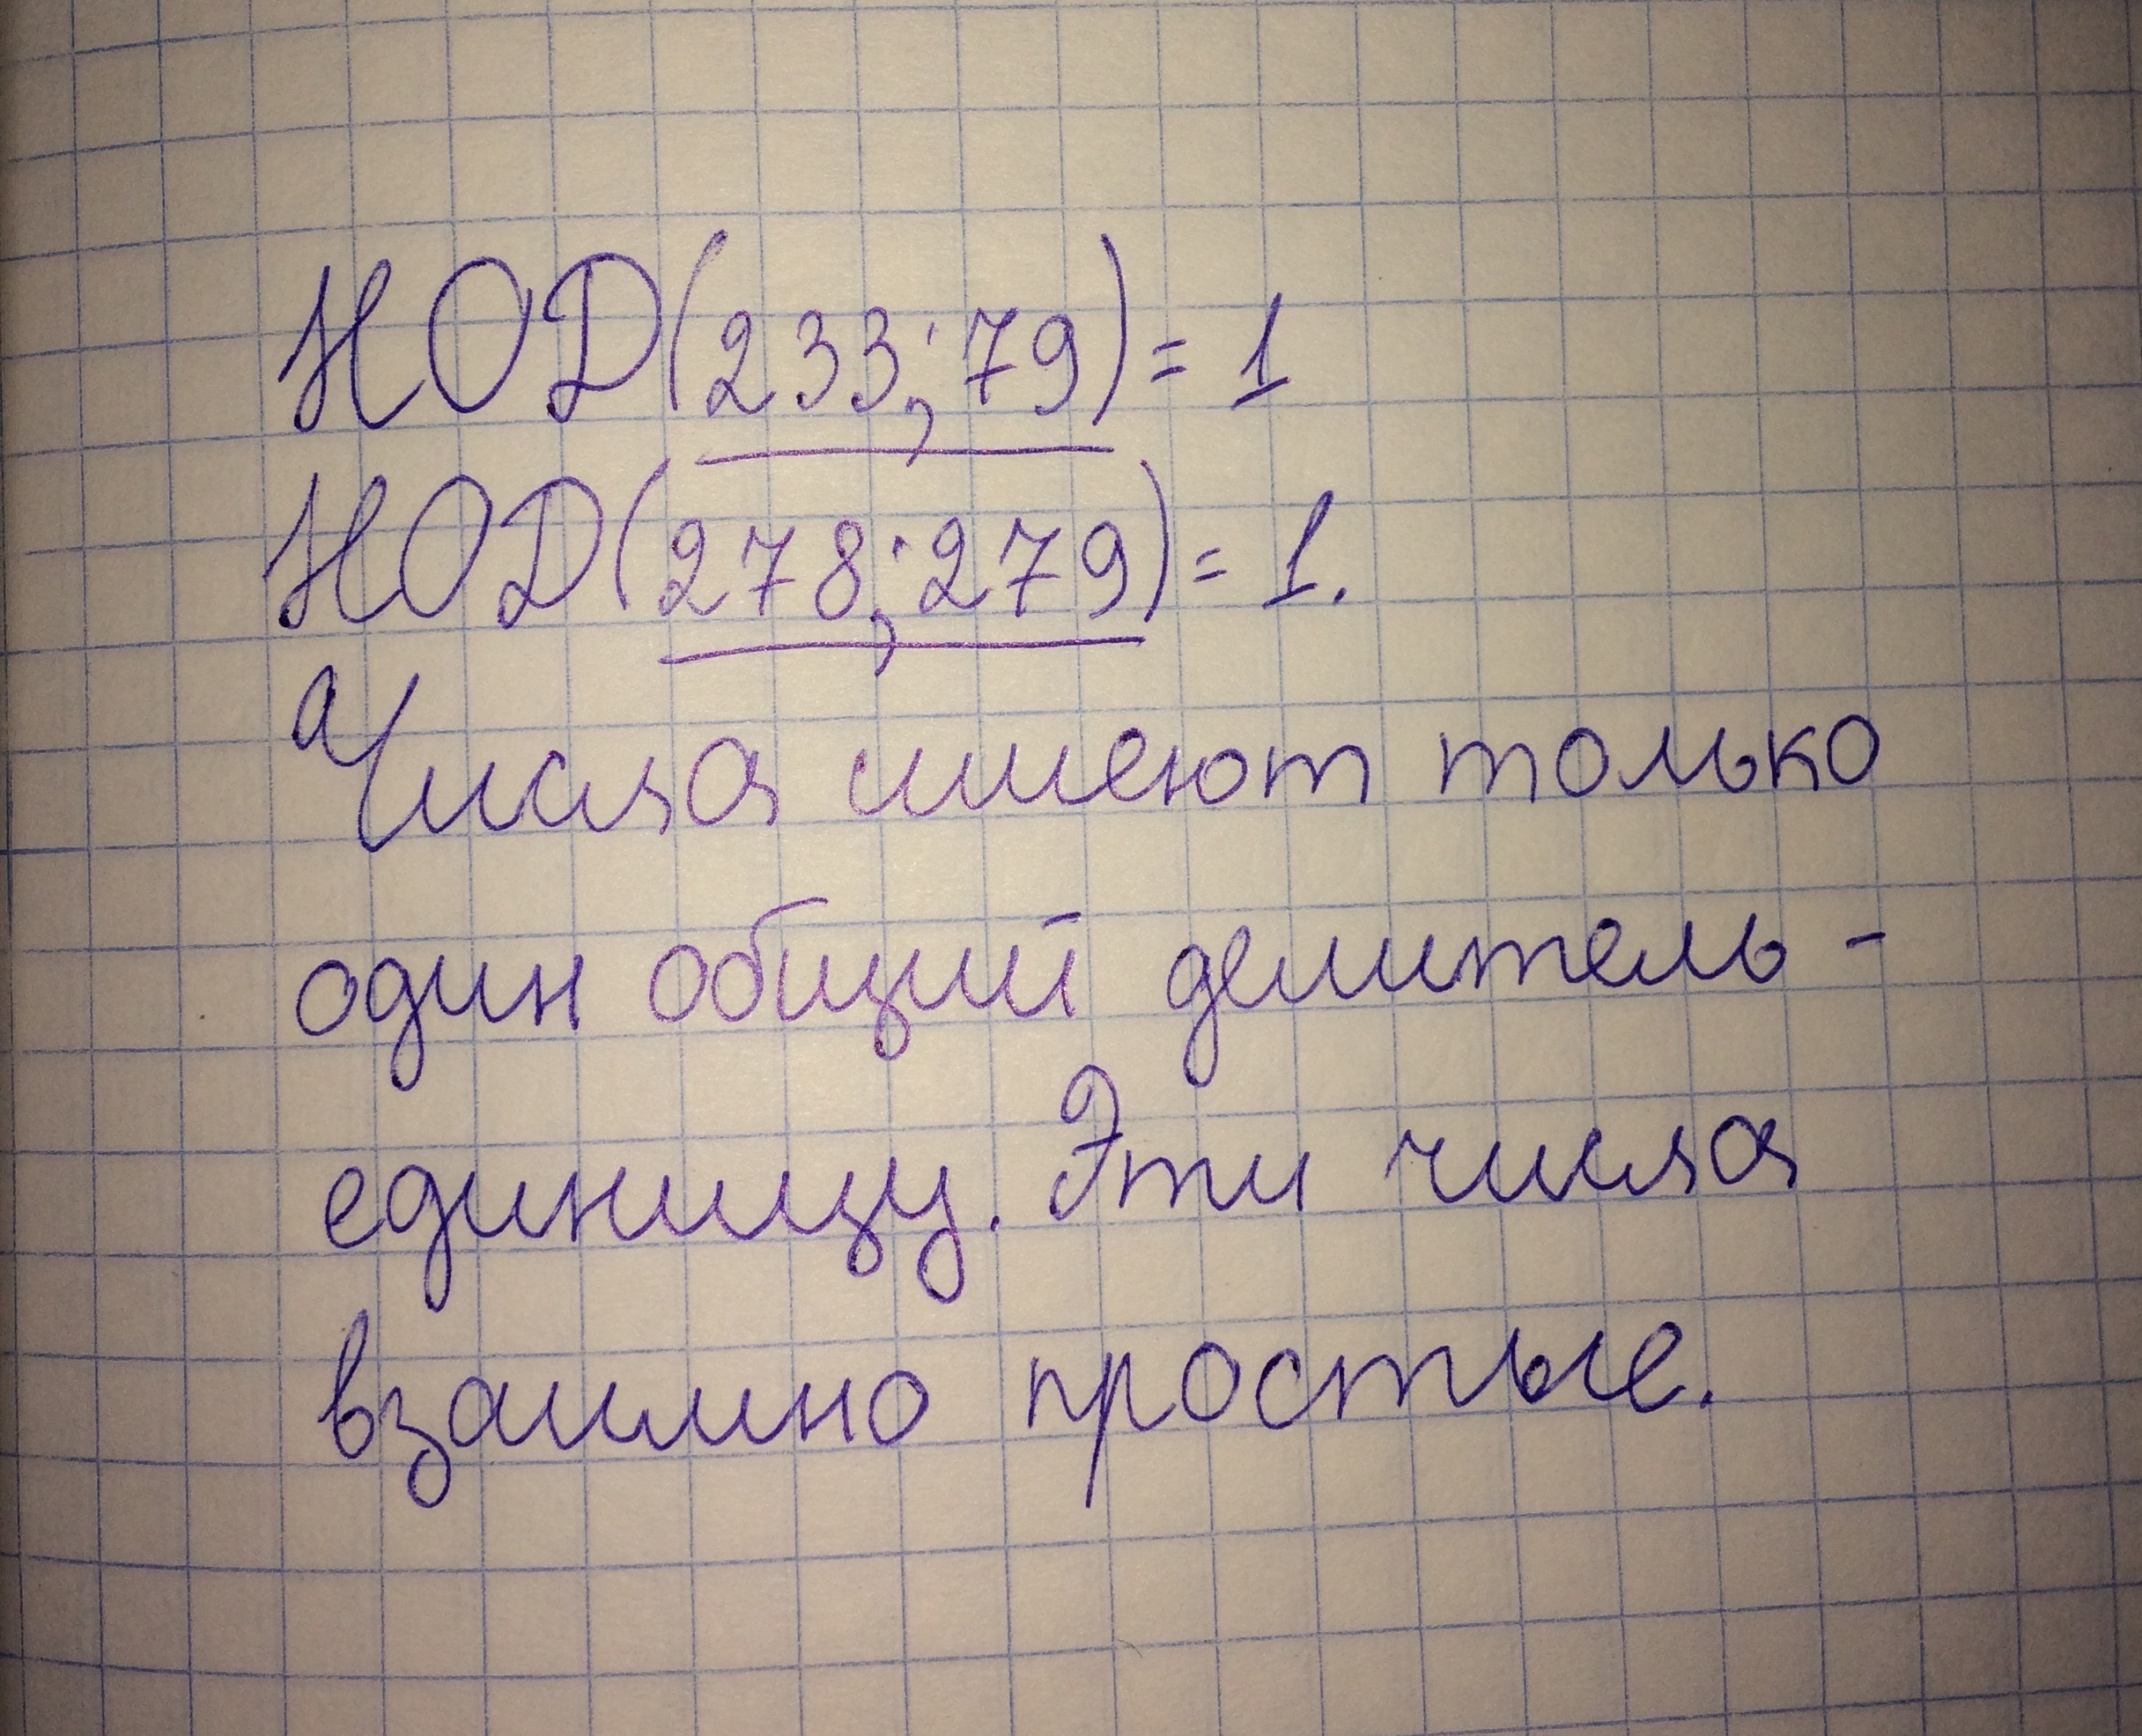 НОД(233; 79) = 1
НОД(278; 279) = 1.
а Числа имеют только
один общий делитель -
единицу. Эти числа
взаимно простые.